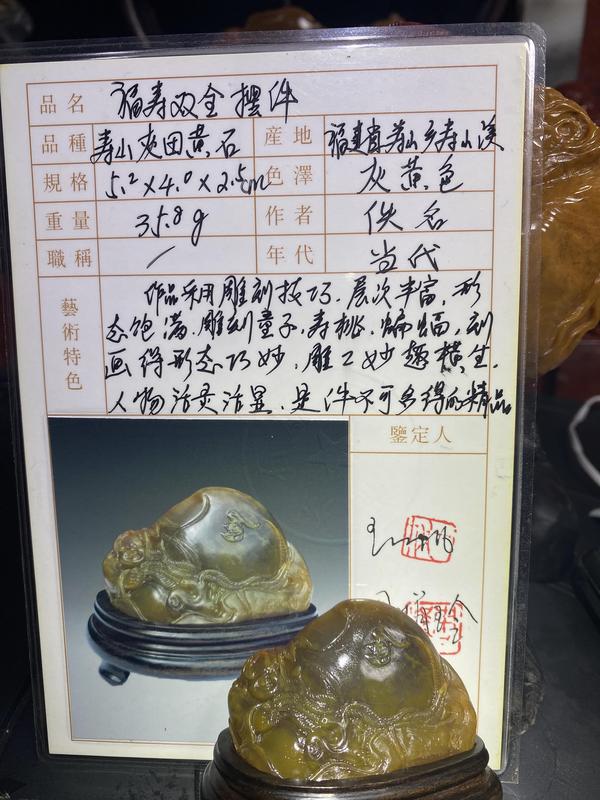 品名 福寿双全摆件
品種 寿山夹田黄石 産地 福建省寿山乡寿山溪
規格 5.2×4.0×2.5cm 色澤 灰黄色
重量 35.8g 作者 佚名
職稱 / 年代 当代
藝術特色
作品采用雕刻技巧,层次丰富,形
态饱满,雕刻童子、寿桃、蝙蝠,刻
画得形态巧妙,雕工妙趣横生,
人物活灵活显,是件不可多得的精品
鑒定人